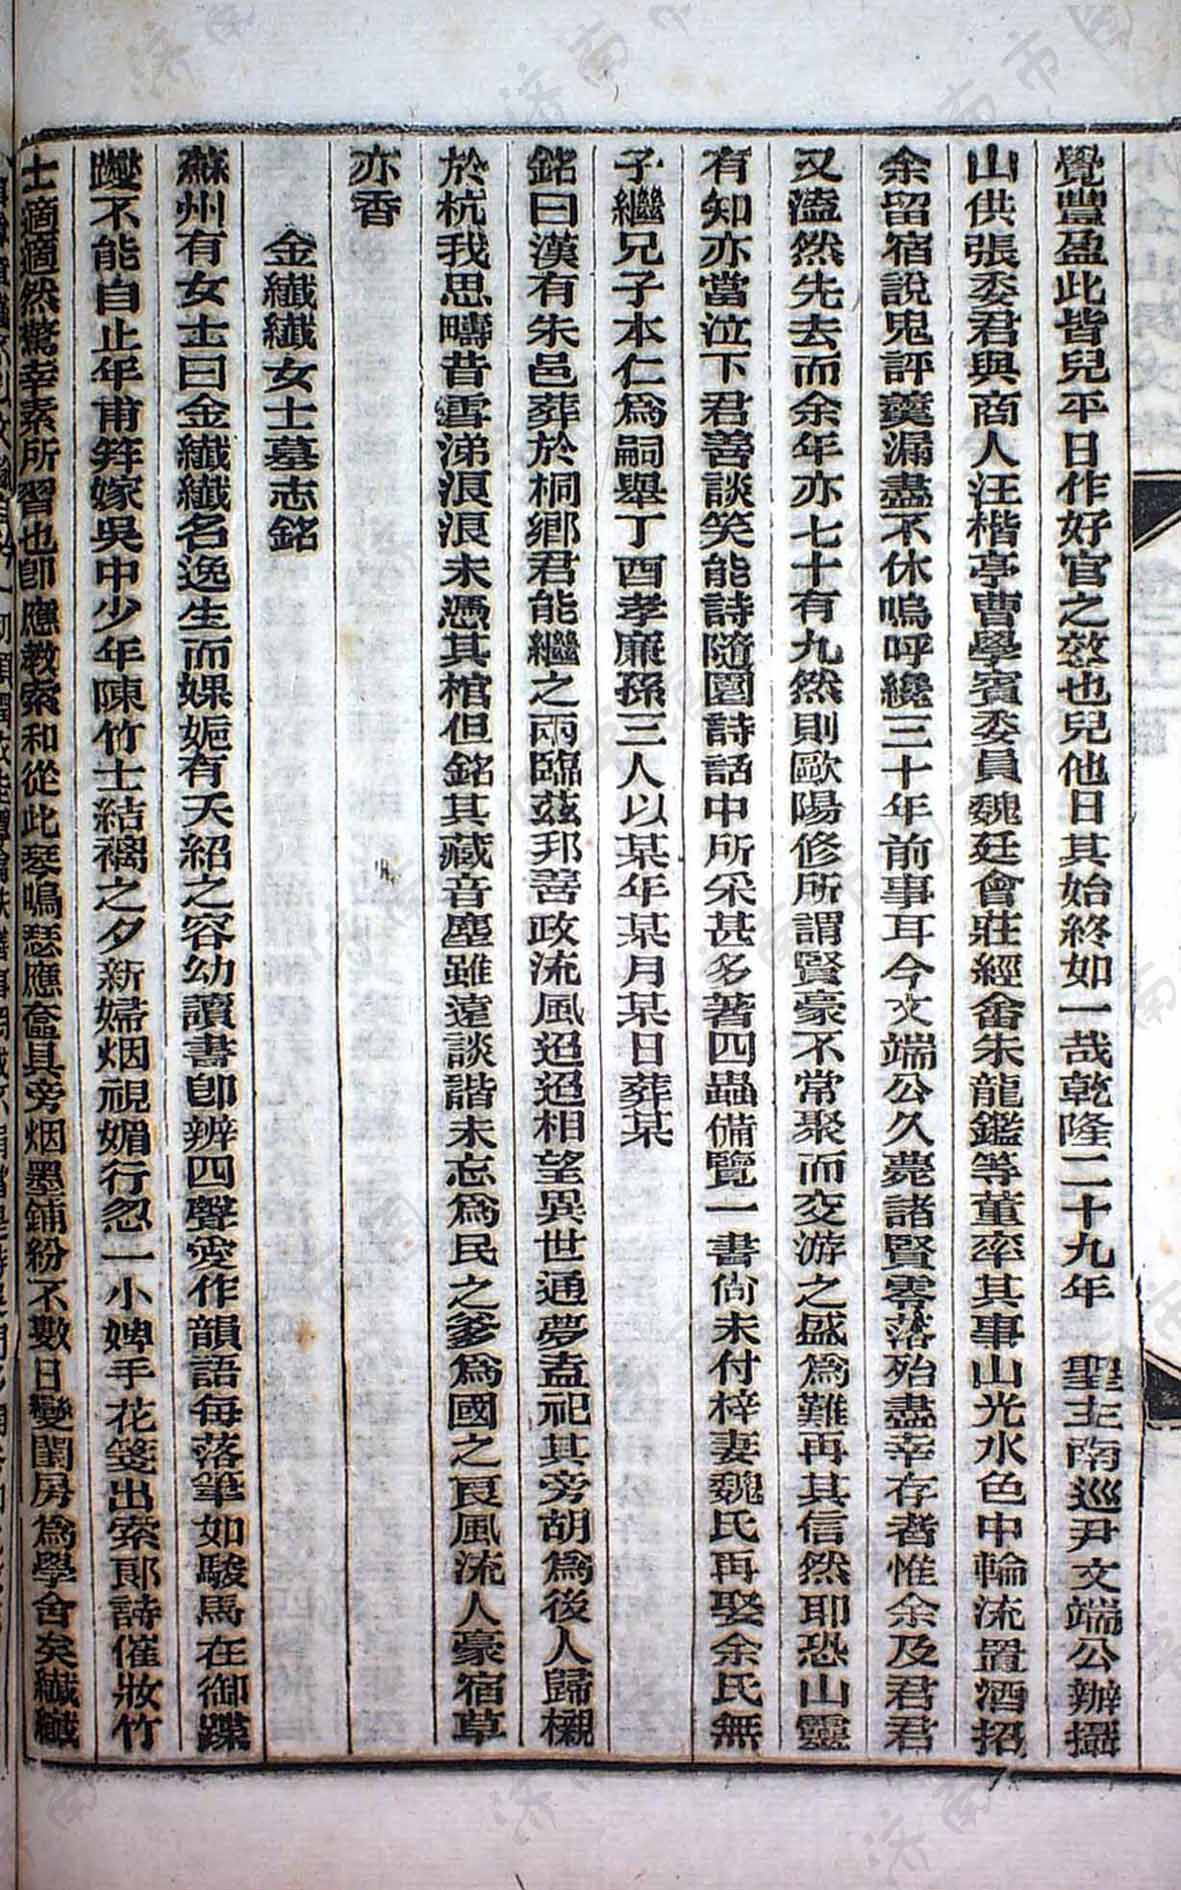 覺豐盈此皆兒平日作好官之效也兒他日其始終如一哉乾隆二十九年　聖主南巡尹文端公辦攝
山供張委君與商人汪楷亭曹學賓委員魏廷會莊經畬朱龍鑑等董率其事山光水色中輪流置酒招
余留宿說鬼評羹漏盡不休嗚呼纔三十年前事耳今文端公久薨諸賢零落殆盡幸存者惟余及君君
又溘然先去而余年亦七十有九然則歐陽修所謂賢豪不常聚而交游之盛爲難再其信然耶恐山靈
有知亦當泣下君善談笑能詩隨園詩話中所采甚多著四蟲備覽一書尙未付梓妻魏氏再娶余氏無
子繼兄子本仁爲嗣舉丁酉孝廉孫三人以某年某月某日葬某
銘曰漢有朱邑葬於桐鄉君能繼之兩臨茲邦善政流風迢迢相望異世通夢盍祀其旁胡爲後人歸櫬
於杭我思疇昔雪涕浪浪未憑其棺但銘其藏音塵雖遠談諧未忘爲民之爹爲國之良風流人豪宿草
亦香
金纖纖女士墓志銘
蘇州有女士曰金纖纖名逸生而婐㛂有天紹之容幼讀書卽辨四聲愛作韻語每落筆如駿馬在御蹀
躞不能自止年甫笄嫁吳中少年陳竹士結褵之夕新婦烟視媚行忽一小婢手花箋出索郞詩催妝竹
士適適然驚幸素所習也卽應教索和從此琴鳴瑟應奩具旁烟墨鋪紛不數日變閨房爲學舍矣纖纖